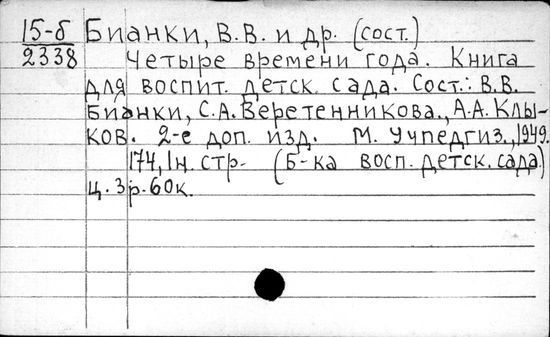 15-б Бианки, В.В. и др. (сост.)
2338 Четыре времени года. Книга
для воспит. детск. сада. Сост.: В.В.
Бианки, С.А. Веретенникова., А.А. Клы-
ков. 2-е доп. изд. М. Учпедгиз., 1949.
174, 1н. стр. (Б-ка восп. детск. сада)
Ц. 3р. 60к.